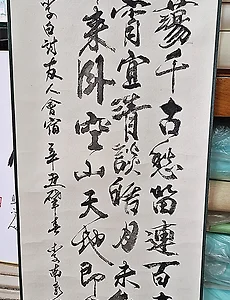 蕩千古愁留連百
宵宜清談皓月未
來臥空山天地即
李白詩友人會宿 辛丑肇春